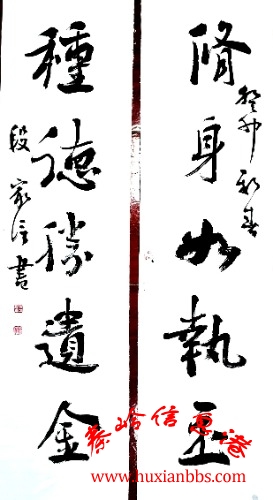 脩身如執玉
癸卯初春
種德勝遺金
段家信書
秦岭信息港
www.huxianbbs.com